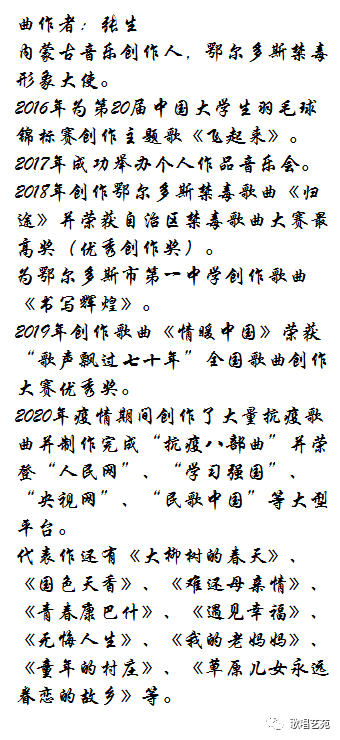 曲作者：张生
内蒙古音乐创作人，鄂尔多斯禁毒
形象大使。
2016年为第20届中国大学生羽毛球
锦标赛创作主题歌《飞起来》。
2017年成功举办个人作品音乐会。
2018年创作鄂尔多斯禁毒歌曲《归
途》并荣获自治区禁毒歌曲大赛最
高奖（优秀创作奖）。
为鄂尔多斯市第一中学创作歌曲
《书写辉煌》。
2019年创作歌曲《情暖中国》荣获
“歌声飘过七十年”全国歌曲创作
大赛优秀奖。
2020年疫情期间创作了大量抗疫歌
曲并制作完成“抗疫八部曲”并荣
登“人民网”、“学习强国”、
“央视网”、“民歌中国”等大型
平台。
代表作还有《大柳树的春天》、
《国色天香》、《难还母亲情》、
《青春康巴什》、《遇见幸福》、
《无悔人生》、《我的老妈妈》、
《童年的村庄》、《草原儿女永远
眷恋的故乡》等。
歌唱艺苑